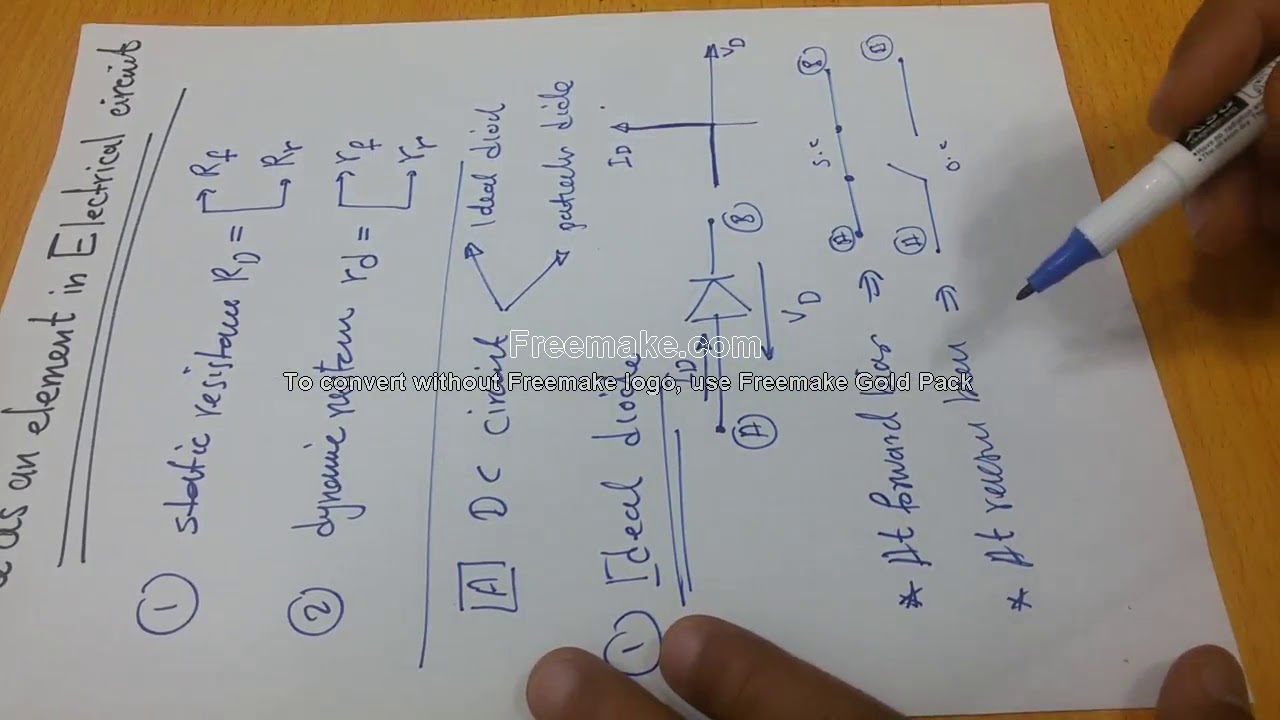 as an element in Electrical circuit
① static resistance R_D = R_f
R_r
② dynamic r_d = r_f
r_r
[A] DC circuit
Ideal diod
① Ideal diode
I_D
V_D
A
I_D
B
V_D
* At forward bias ⇒
A
S.C
B
* At ⇒
A
O.C
B
Freemake.com
To convert without Freemake logo, use Freemake Gold Pack